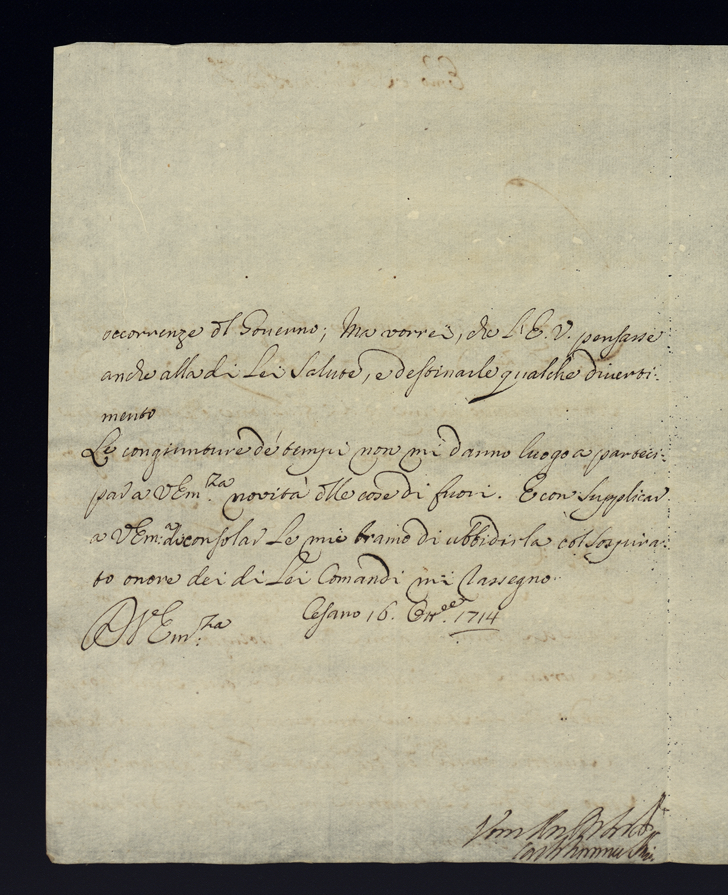 occorrenze dl Gouerno; Ma vorrei, che l'E. V. pensasse
anche alla di Lei Salute, e destinarle qualche diverti-
mento
Le congiunture de' tempi non mi danno luogo a parteci-
par a VEm.za novità dlle cose di fuori. E con supplicar
a VEm:a di consolar le mie brame di ubbidirla col sospira-
to onore dei di Lei Comandi mi rassegno
Di VEm.za Cesano 16. 1714